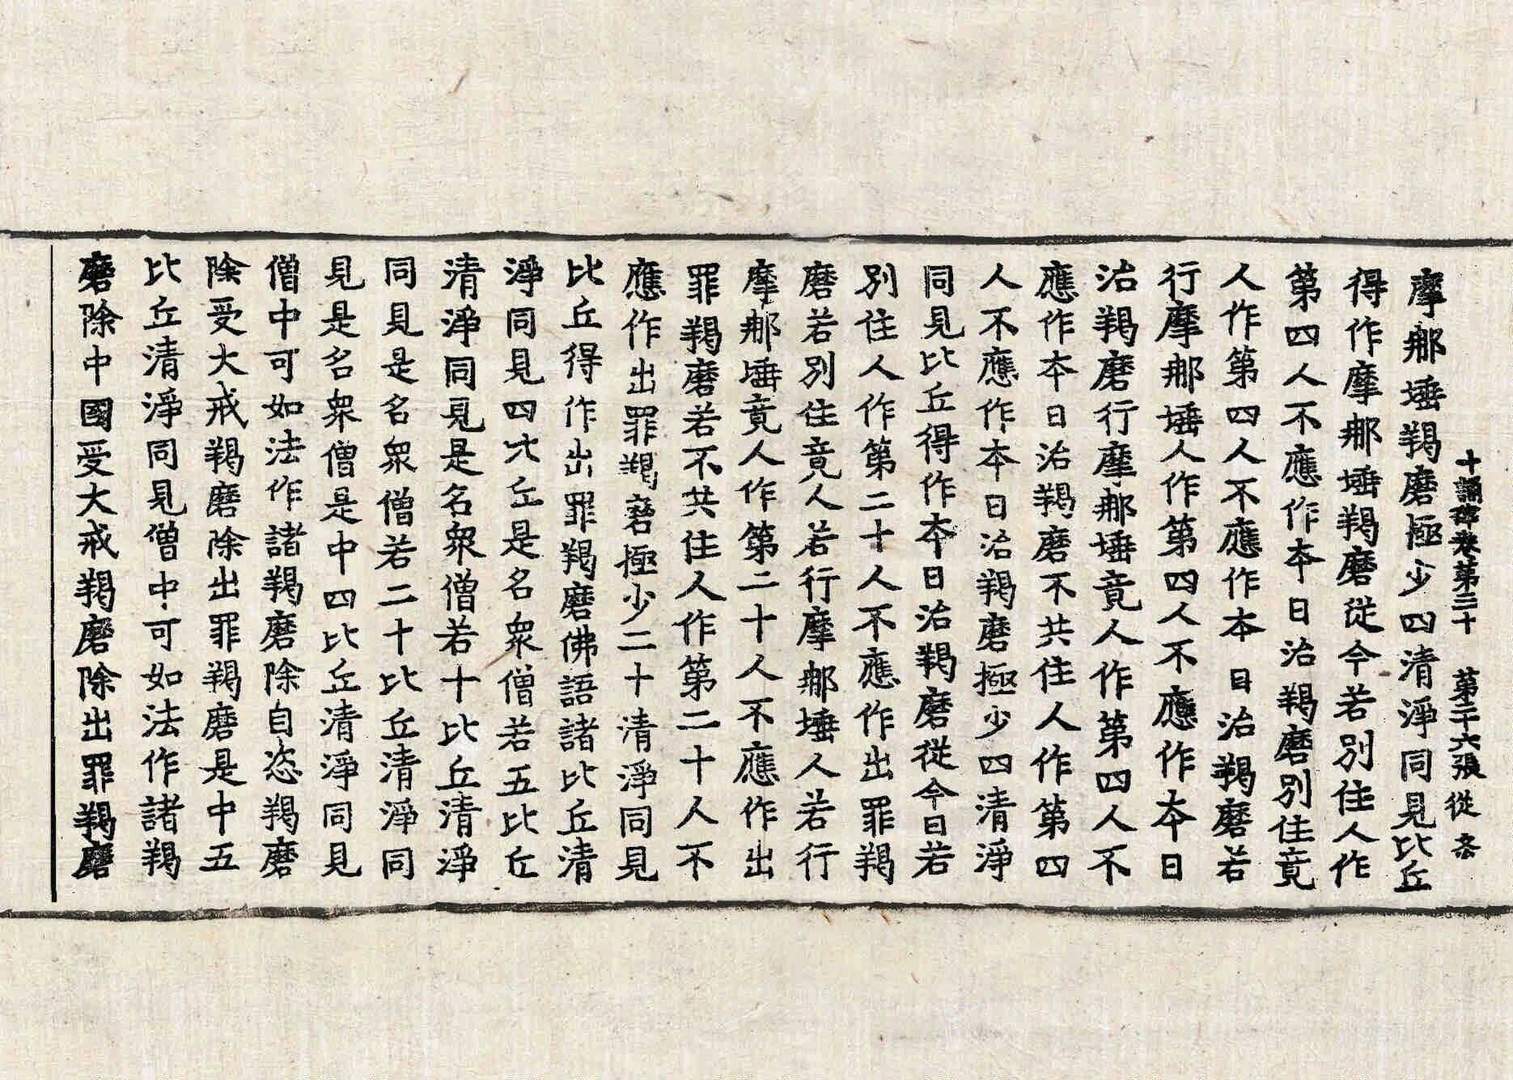 十誦律卷第三十　第二十六張　從
摩那埵羯磨極少四清淨同見比丘
得作摩那埵羯磨從今若別住人作
第四人不應作本日治羯磨別住竟
人作第四人不應作本日治羯磨若
行摩那埵人作第四人不應作本日
治羯磨行摩那埵竟人作第四人不
應作本日治羯磨不共住人作第四
人不應作本日治羯磨極少四清淨
同見比丘得作本日治羯磨從今日若
別住人作第二十人不應作出罪羯
磨若別住竟人若行摩那埵人若行
摩那埵竟人作第二十人不應作出
罪羯磨若不共住人作第二十人不
應作出罪羯磨極少二十清淨同見
比丘得作出罪羯磨佛語諸比丘清
淨同見四比丘是名衆僧若五比丘
清淨同見是名衆僧若十比丘清淨
同見是名衆僧若二十比丘清淨同
見是名衆僧是中四比丘清淨同見
僧中可如法作諸羯磨除自恣羯磨
除受大戒羯磨除出罪羯磨是中五
比丘清淨同見僧中可如法作諸羯
磨除中國受大戒羯磨除出罪羯磨